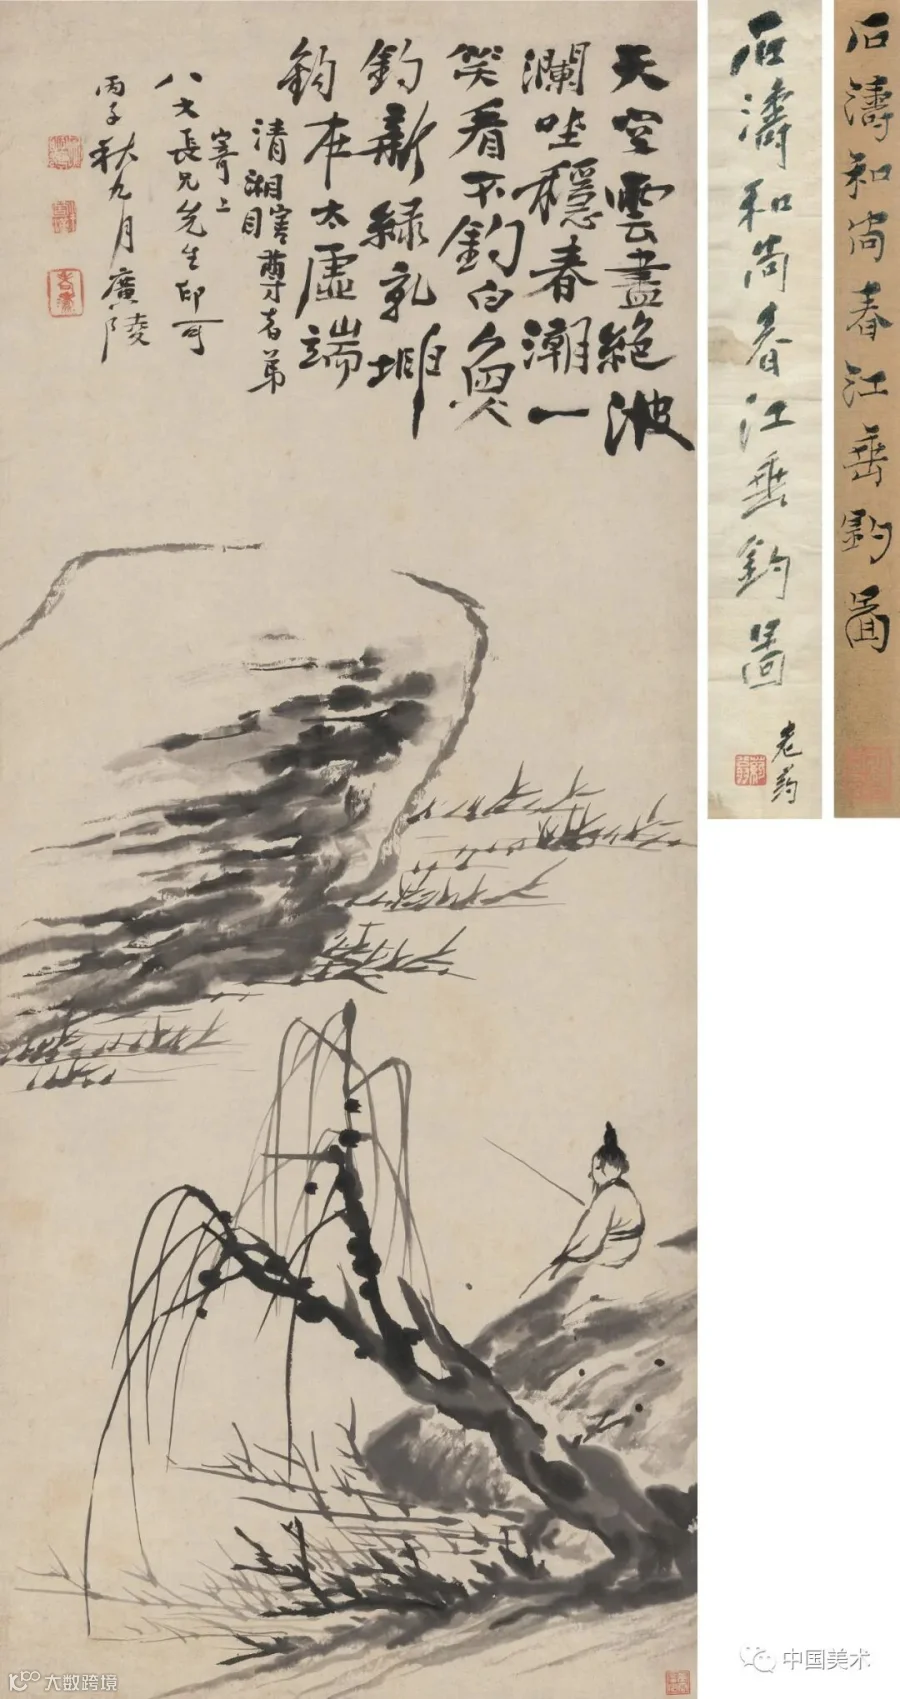 天空雲盡絕波
瀾坐穩春潮一
笑看不釣白魚
釣新綠乾坤
釣在太虛端
清湘瞎尊者弟
寄上
八大長兄先生印可
丙子秋九月廣陵
石濤和尚春江垂釣圖
老葯
石濤和尚春江垂釣圖
中国美术
大数跨境